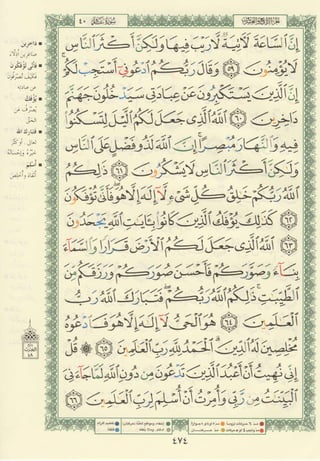 سورة غافر ٤٠
إِنَّ ٱلسَّاعَةَ لَـَٔاتِيَةٌ لَّا رَيْبَ فِيهَا وَلَـٰكِنَّ أَكْثَرَ ٱلنَّاسِ
لَا يُؤْمِنُونَ ٥٩ وَقَالَ رَبُّكُمُ ٱدْعُونِىٓ أَسْتَجِبْ لَكُمْ
إِنَّ ٱلَّذِينَ يَسْتَكْبِرُونَ عَنْ عِبَادَتِى سَيَدْخُلُونَ جَهَنَّمَ
دَاخِرِينَ ٦٠ ٱللَّهُ ٱلَّذِى جَعَلَ لَكُمُ ٱلَّيْلَ لِتَسْكُنُوا۟
فِيهِ وَٱلنَّهَارَ مُبْصِرًا إِنَّ ٱللَّهَ لَذُو فَضْلٍ عَلَى ٱلنَّاسِ
وَلَـٰكِنَّ أَكْثَرَ ٱلنَّاسِ لَا يَشْكُرُونَ ٦١ ذَٰلِكُمُ
ٱللَّهُ رَبُّكُمْ خَـٰلِقُ كُلِّ شَىْءٍ لَّآ إِلَـٰهَ إِلَّا هُوَ فَأَنَّىٰ تُؤْفَكُونَ
٦٢ كَذَٰلِكَ يُؤْفَكُ ٱلَّذِينَ كَانُوا۟ بِـَٔايَـٰتِ ٱللَّهِ يَجْحَدُونَ
٦٣ ٱللَّهُ ٱلَّذِى جَعَلَ لَكُمُ ٱلْأَرْضَ قَرَارًا وَٱلسَّمَآءَ
بِنَآءً وَصَوَّرَكُمْ فَأَحْسَنَ صُوَرَكُمْ وَرَزَقَكُم مِّنَ
ٱلطَّيِّبَـٰتِ ذَٰلِكُمُ ٱللَّهُ رَبُّكُمْ فَتَبَارَكَ ٱللَّهُ رَبُّ
ٱلْعَـٰلَمِينَ ٦٤ هُوَ ٱلْحَىُّ لَآ إِلَـٰهَ إِلَّا هُوَ فَٱدْعُوهُ
مُخْلِصِينَ لَهُ ٱلدِّينَ ٱلْحَمْدُ لِلَّهِ رَبِّ ٱلْعَـٰلَمِينَ ٦٥ ۞ قُلْ
إِنِّى نُهِيتُ أَنْ أَعْبُدَ ٱلَّذِينَ تَدْعُونَ مِن دُونِ ٱللَّهِ لَمَّا جَآءَنِىَ
ٱلْبَيِّنَـٰتُ مِن رَّبِّى وَأُمِرْتُ أَنْ أُسْلِمَ لِرَبِّ ٱلْعَـٰلَمِينَ ٦٦
داخرين
صاغرين أذلاء
فأنى تؤفكون
فكيف تصرفون
عن عبادته
يؤفك
يصرف عن
الحق
فتبارك الله
أسلم
٤٧٤